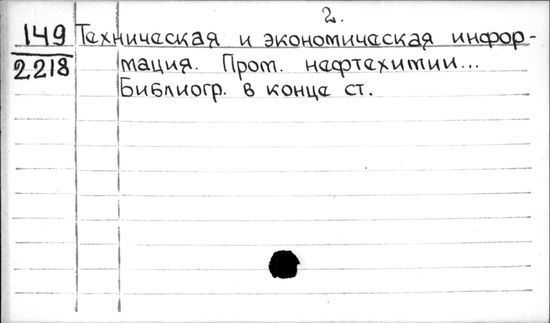 2.
149 Техническая и экономическая инфор-
2218 мация. Пром. нефтехимии...
Библиогр. в конце ст.